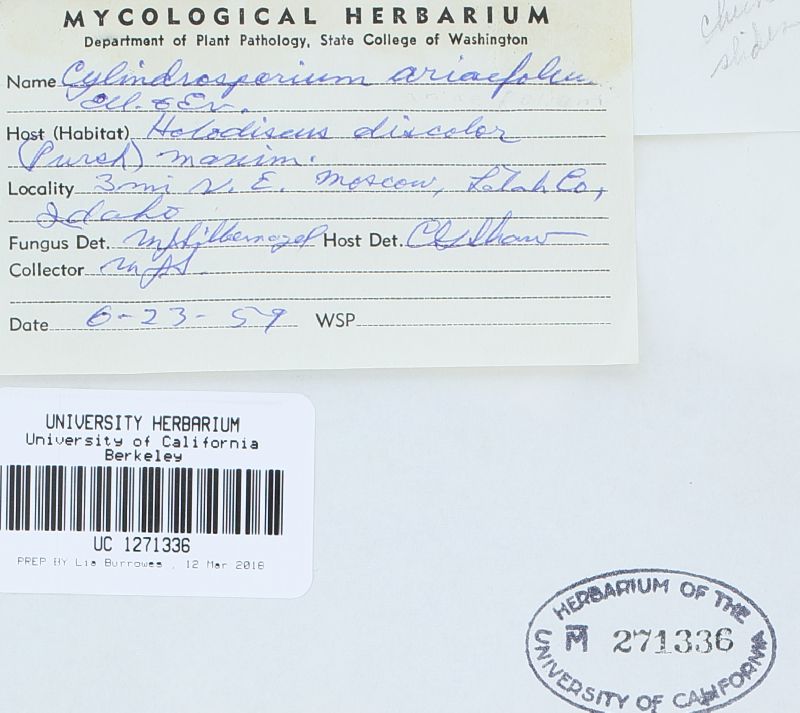 MYCOLOGICAL HERBARIUM
Department of Plant Pathology, State College of Washington
Name Cylindrosporium ariaefolium
Ell. & Ev.
Host (Habitat) Holodiscus discolor
(Pursh) Maxim.
Locality 3 mi N. E. Moscow, Latah Co,
Idaho
Fungus Det. MJSilbernagel Host Det. CGShaw
Collector MJS.
Date 6-23-59 WSP
slides
UNIVERSITY HERBARIUM
University of California
Berkeley
UC 1271336
PREP BY Lia Burrowes , 12 Mar 2018
HERBARIUM OF THE
M 271336
UNIVERSITY OF CALIFORNIA